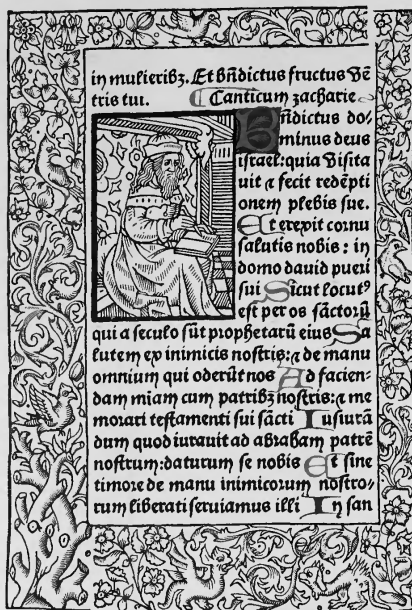 in mulieribꝫ. Et bn̄dictus fructus vē
tris tui. Canticum zacharie
Bn̄dictus do⸗
minus deus
israel: quia visita
uit ⁊ fecit redēpti
onem plebis sue.
Et erexit cornu
salutis nobis: in
domo dauid pueri
sui Sicut locutꝰ
est per os sāctorū
qui a seculo sūt prophetarū eius Sa
lutem ex inimicis nostris: ⁊ de manu
omnium qui oderūt nos Ad facien⸗
dam miam cum patribꝫ nostris: ⁊ me
morari testamenti sui sācti Iusiurā
dum quod iurauit ad abraham patrē
nostrum: daturum se nobis Et sine
timore de manu inimicorum nostro⸗
rum liberati seruiamus illi In san